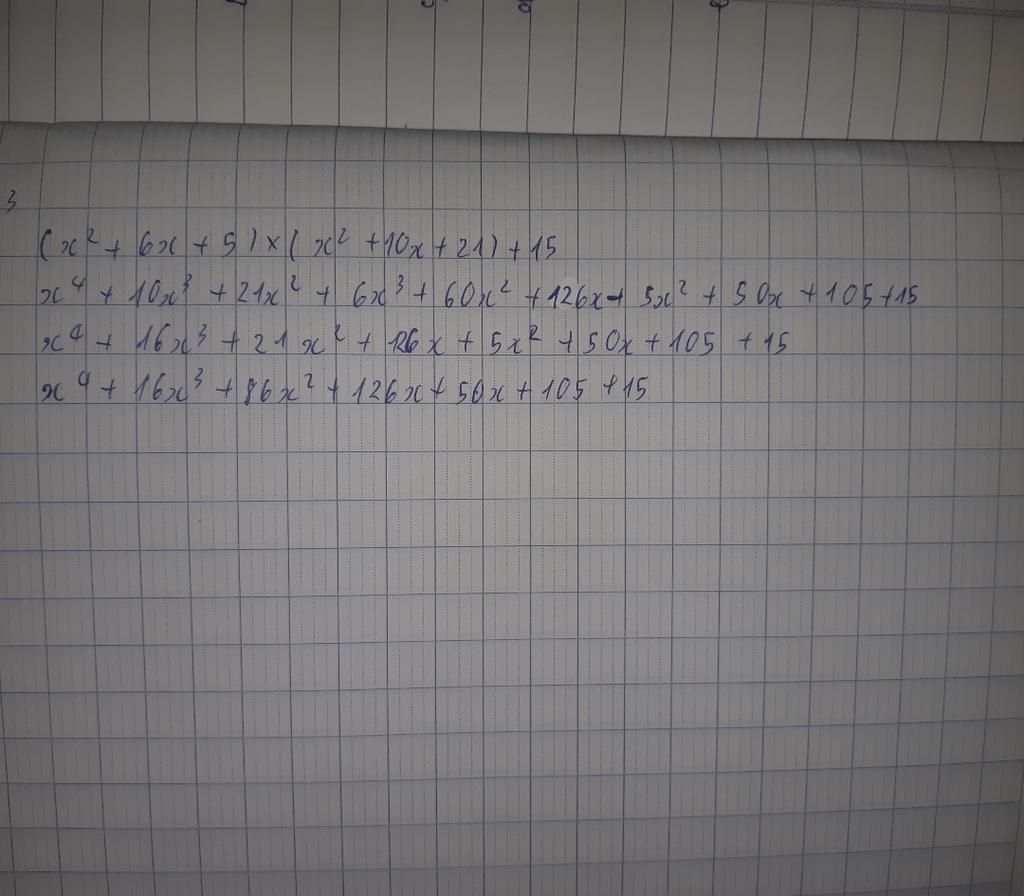 3
(x² + 6x + 5) × ( x² + 10x + 21) + 15
x⁴ + 10x³ + 21x² + 6x³ + 60x² + 126x + 5x² + 50x + 105 + 15
x⁴ + 16x³ + 21x² + 126x + 5x² + 50x + 105 + 15
x⁴ + 16x³ + 86x² + 126x + 50x + 105 + 15